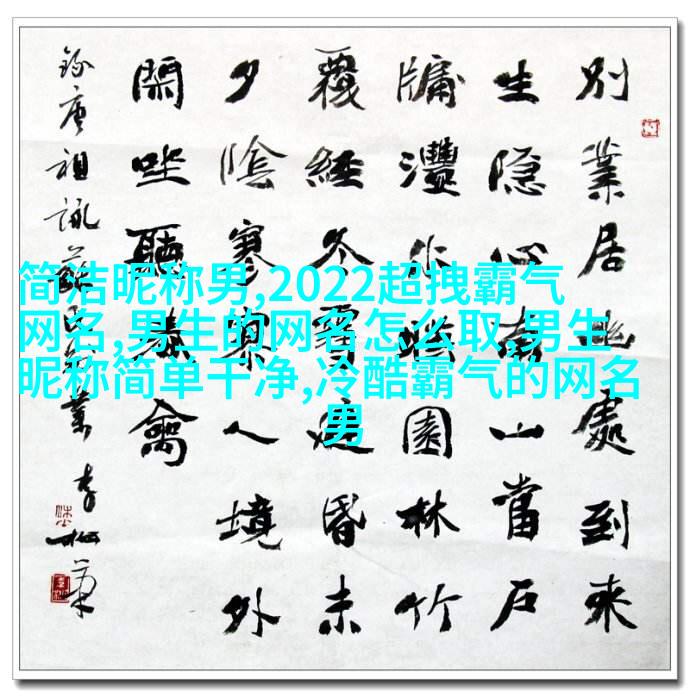 别業居幽處到来
生隐心南山當户
牖灃水暎園林竹
覆經冬雪庭昏未
夕陰寥寥人境外
閑坐聽春禽
錄唐祖詠蘇氏别業
简洁昵称男,2022超拽霸气
网名,男生的网名怎么取,男生
昵称简单干净,冷酷霸气的网名
男